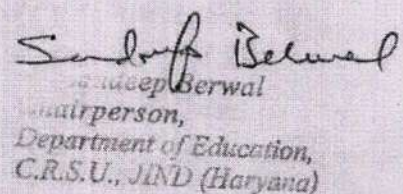 Sandeep Berwal
Sandeep Berwal
Chairperson,
Department of Education,
C.R.S.U., JIND (Haryana)